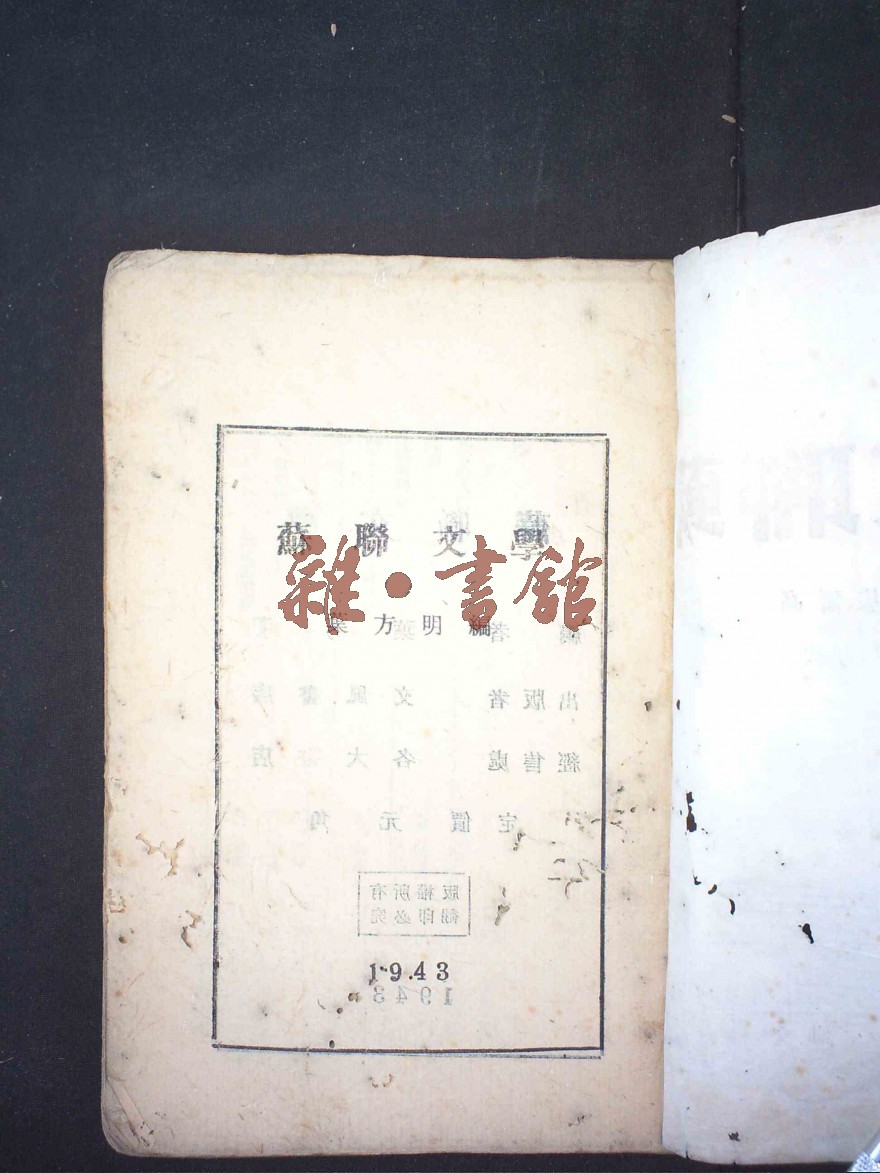 蘇聯文學
雜·書館
葉方明編
出版者 文風書店
經售處 各大書店
定價 元 角
版權所有
翻印必究
1943
1943